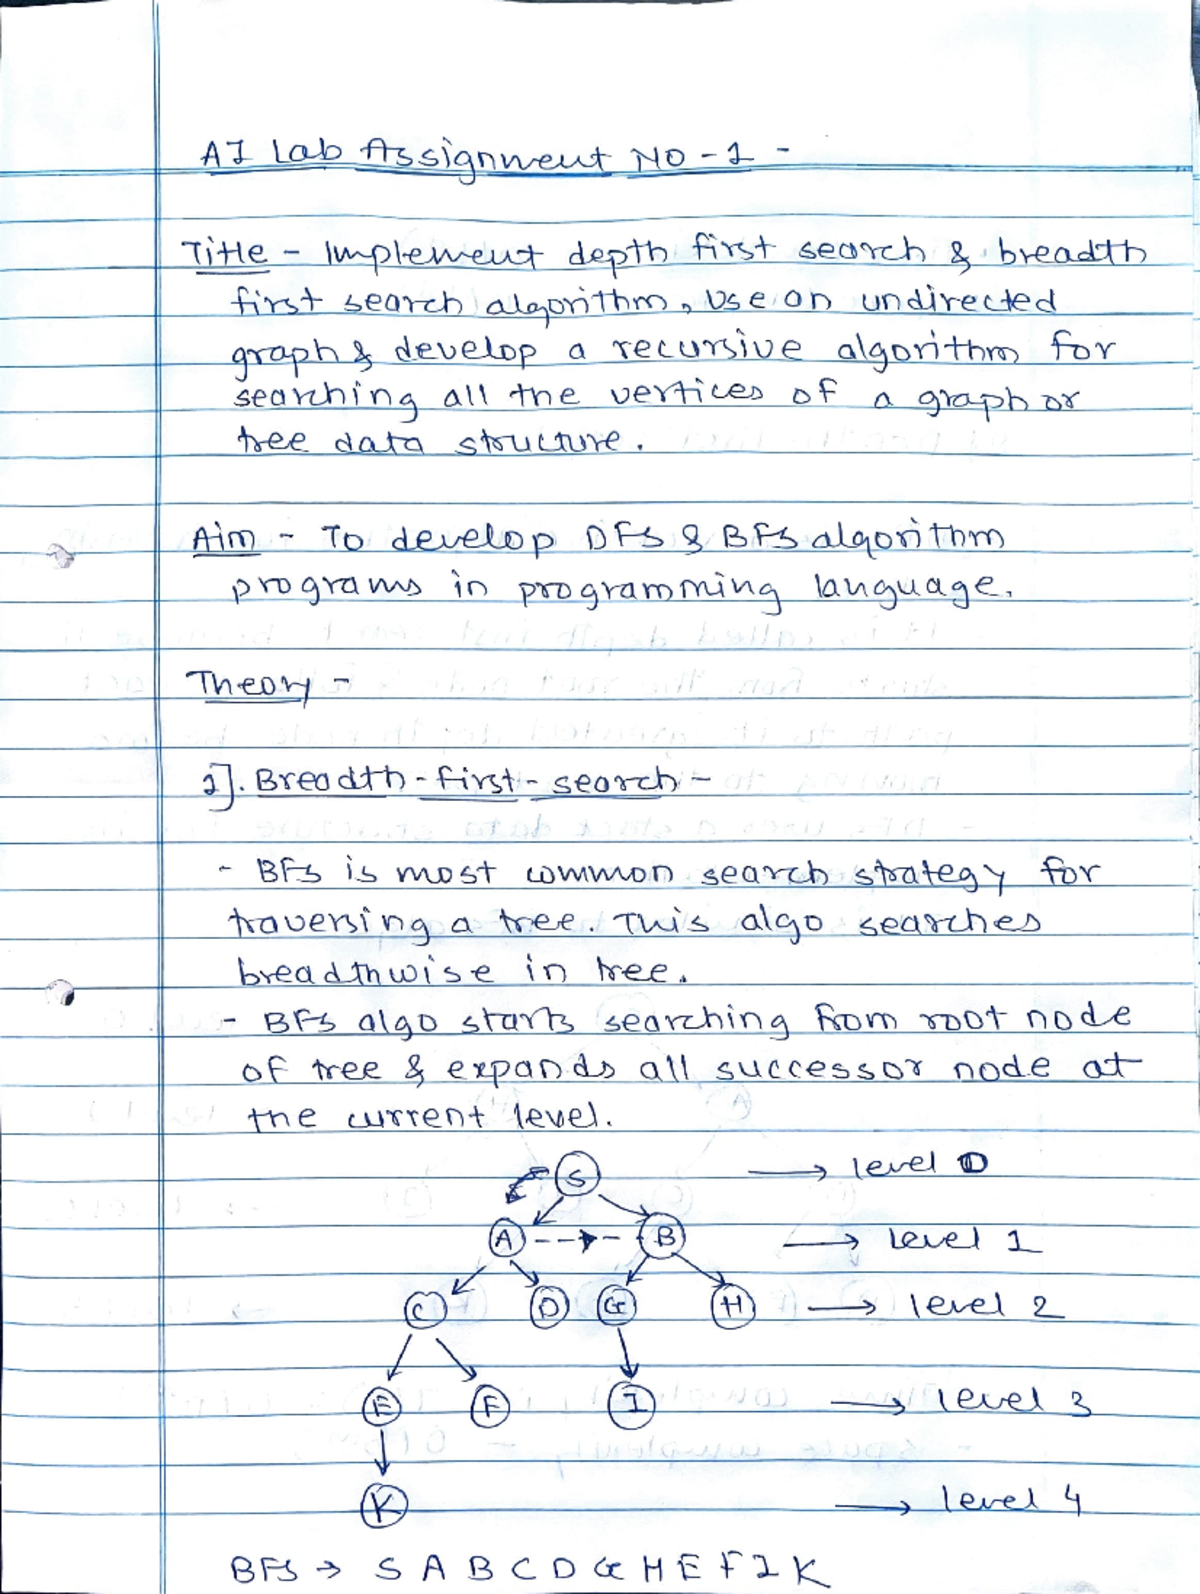 AI Lab Assignment No - 1 -
Title - Implement depth first search & breadth
first search algorithm, Use an undirected
graph & develop a recursive algorithm for
searching all the vertices of a graph or
tree data structure.
Aim - To develop DFS & BFS algorithm
programs in programming language.
Theory -
1]. Breadth - first - search -
- BFS is most common search strategy for
traversing a tree. This algo searches
breadthwise in tree.
- BFS algo starts searching from root node
of tree & expands all successor node at
the current level.
S → level 0
A B → Level 1
C D G H → level 2
E F I → level 3
K → level 4
BFS → S A B C D G H E F I K